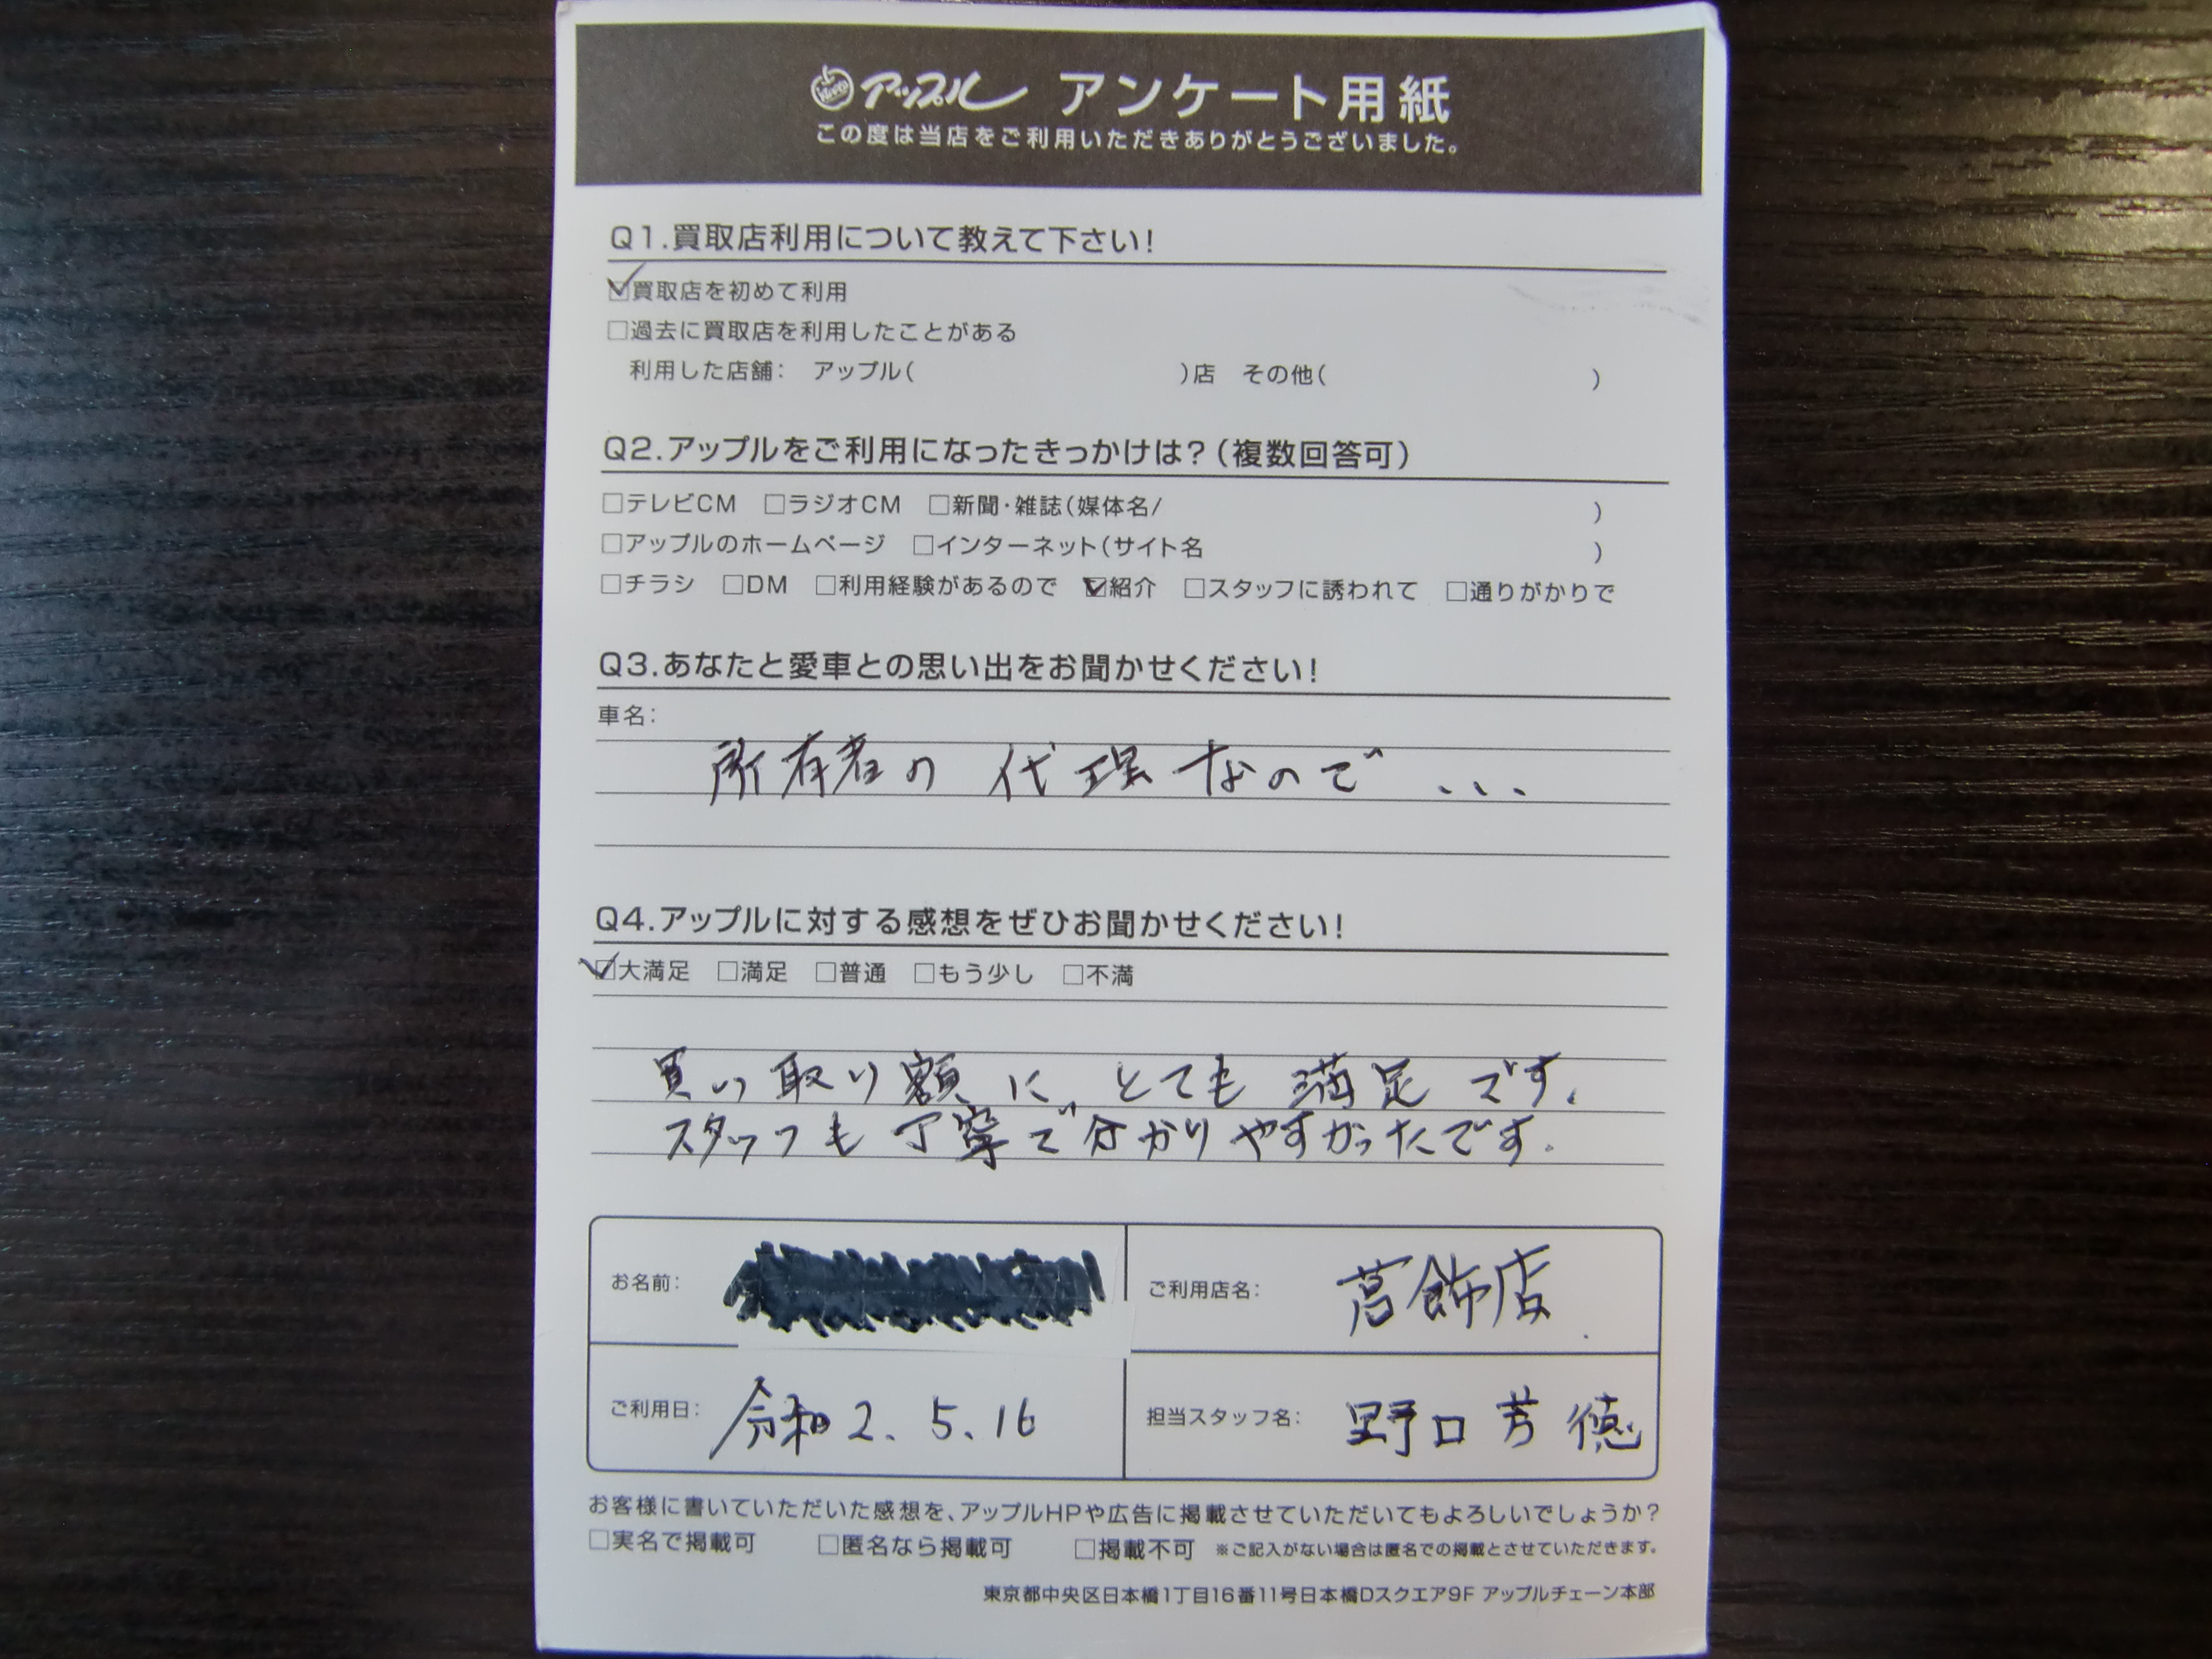 アップル アンケート用紙
この度は当店をご利用いただきありがとうございました。
Q1.買取店利用について教えて下さい!
☑買取店を初めて利用
□過去に買取店を利用したことがある
利用した店舗: アップル( )店 その他( )
Q2.アップルをご利用になったきっかけは?(複数回答可)
□テレビCM □ラジオCM □新聞・雑誌(媒体名/ )
□アップルのホームページ □インターネット(サイト名 )
□チラシ □DM □利用経験があるので ☑紹介 □スタッフに誘われて □通りがかりで
Q3.あなたと愛車との思い出をお聞かせください!
車名:
所有者の代理なので...
Q4.アップルに対する感想をぜひお聞かせください!
☑大満足 □満足 □普通 □もう少し □不満
買い取り額に とても満足です.
スタッフも丁寧で分かりやすかったです.
お名前: ご利用店名: 葛飾店
ご利用日: 令和2.5.16 担当スタッフ名: 野口芳徳
お客様に書いていただいた感想を、アップルHPや広告に掲載させていただいてもよろしいでしょうか?
□実名で掲載可 □匿名なら掲載可 □掲載不可 ※ご記入がない場合は匿名での掲載とさせていただきます。
東京都中央区日本橋1丁目16番11号日本橋Dスクエア9F アップルチェーン本部